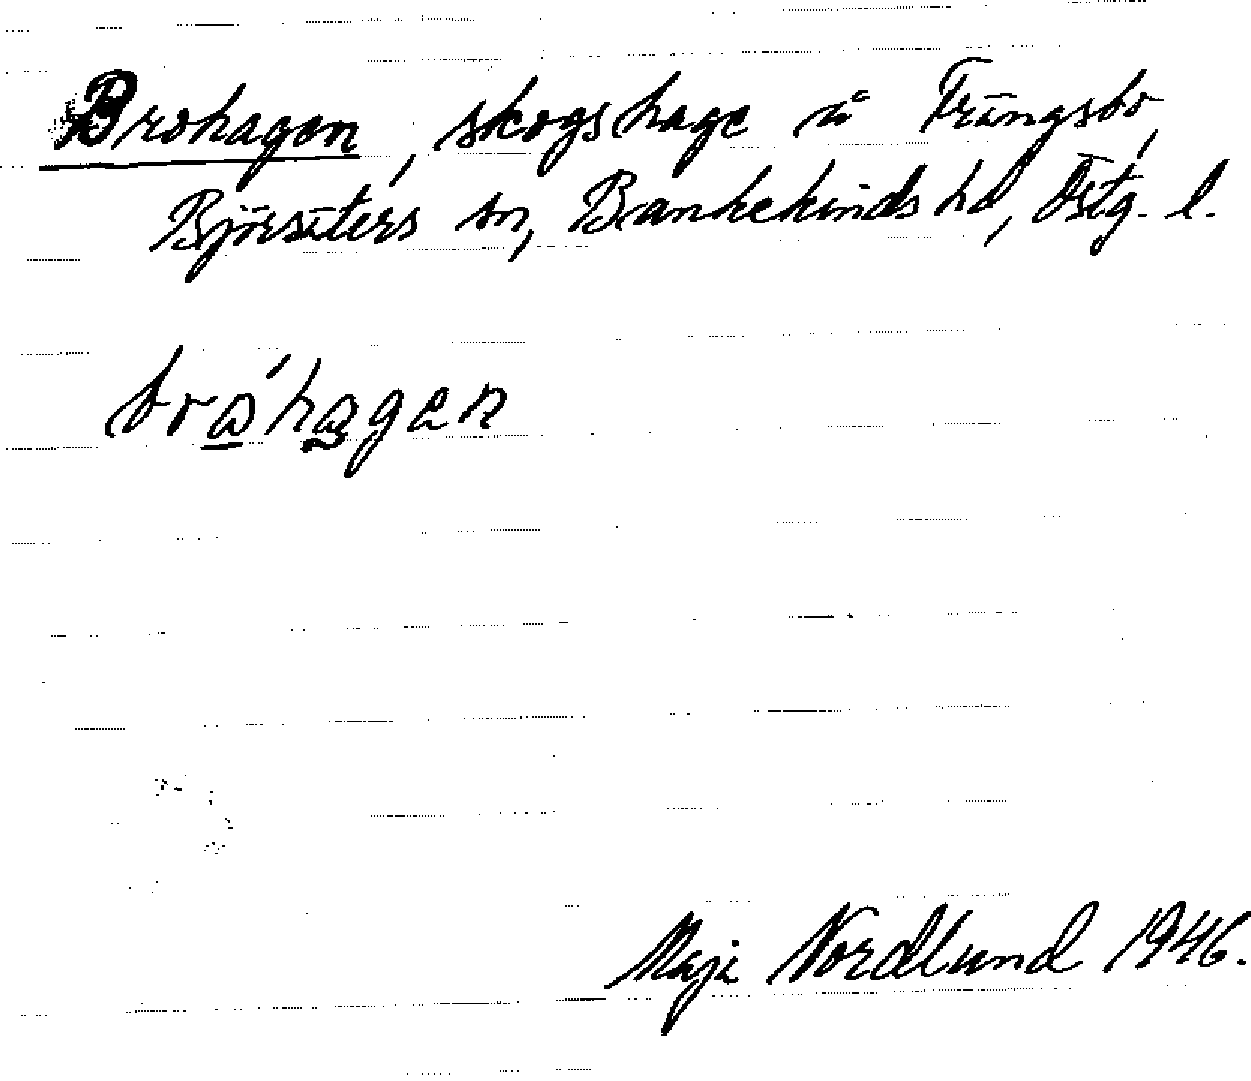 Brohagen, skogshage å Trängsbo,
Björsäters sn, Bankekinds hd, Östg. l.
bro̲'ha̲gen
Maja Nordlund 1946.